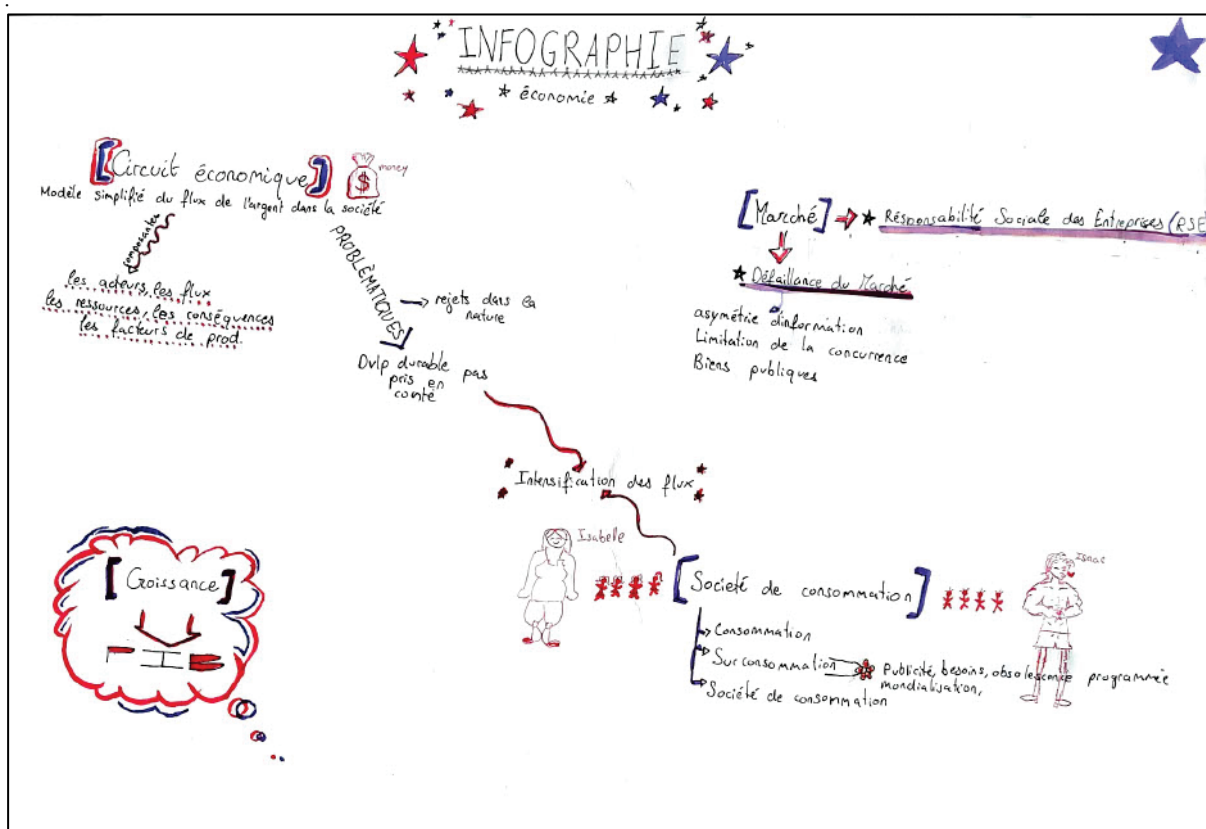 INFOGRAPHIE
économie
[Circuit économique]
money
$
Modèle simplifié du flux de l'argent dans la société
composantes
les acteurs, les flux
les ressources, les conséquences
les facteurs de prod.
PROBLÉMATIQUES
rejets dans la
nature
Dvlp durable pas
pris en
comté
[Marché]
Résponsabilité Sociale des Entreprises (RSE
Défaillance du Marché
asymétrie d'information
Limitation de la concurrence
Biens publiques
Intensification des flux
Isabelle
[Societé de consommation]
Isaac
Consommation
Surconsommation
Publicité, besoins, obsolescence programmée
mondialisation,
Société de consommation
[Croissance]